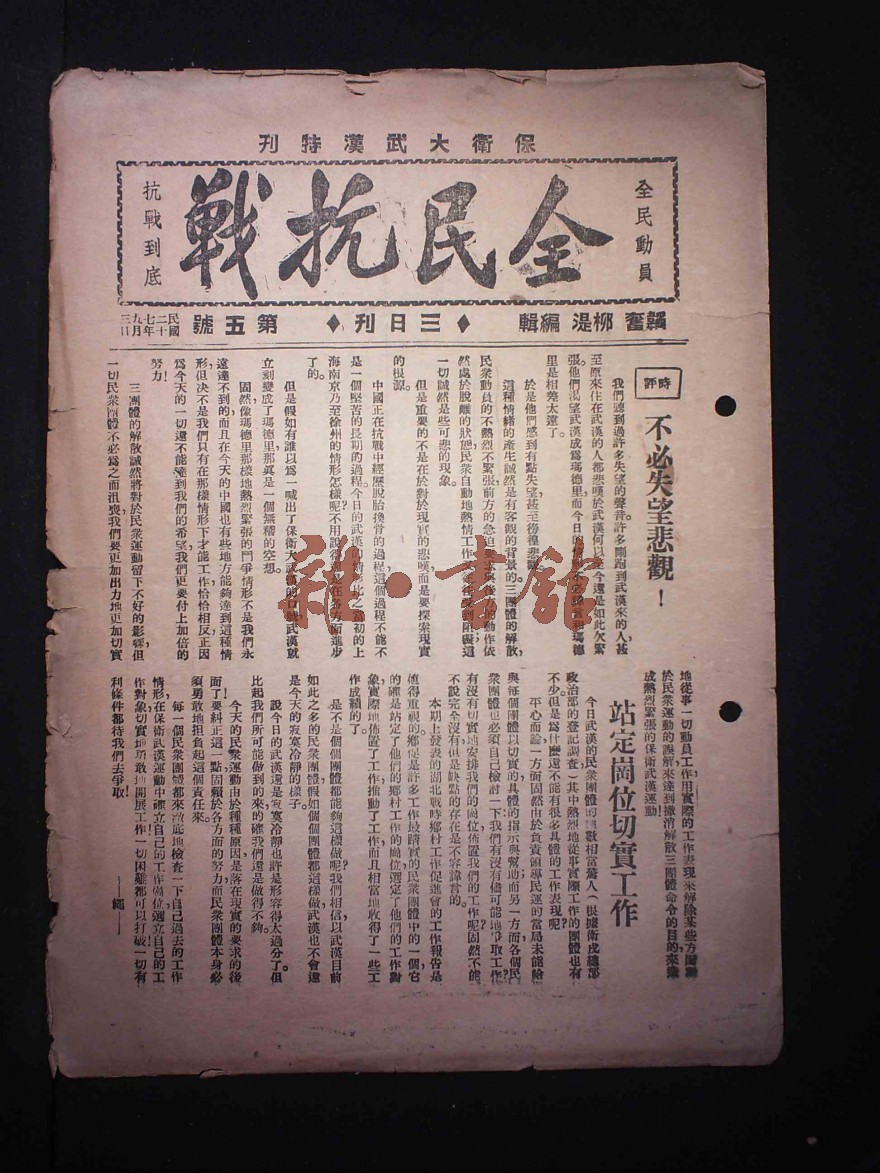 保衛大武漢特刊
全民動員
全民抗戰
抗戰到底
韜奮 柳湜 編輯
三日刊
第五號
民國二十七年九月三日
時評
不必失望悲觀！
我們聽到過許多失望的聲音許多剛跑到武漢來的人，甚
至原來住在武漢的人都悲嘆於武漢何以至今還是如此欠緊
張。他們渴望武漢成為瑪德里，而今日的
里是相差太遠了。
於是他們感到有點失望，甚至徬徨悲觀。
這種情緒的產生誠然是有客觀的背景的。三團體的解散，
民眾動員的不熱烈不緊張，前方的急迫
然處於脫離的狀態，民眾自動地熱情工作
一切誠然是些可悲的現象。
但是重要的不是在於對於現實的悲嘆，而是要探索現實
的根源。
中國正在抗戰中經歷脫胎換骨的過程，這個過程不能不
是一個堅苦的長期的過程。今日的武漢
比之當初的上
海南京乃至徐州的情形怎樣呢？不用說
在各方面進步
了的。
但是假如有誰以為一喊出了保衛大武漢的口號，武漢就
立刻變成了瑪德里，那真是一個無稽的空想。
固然，像瑪德里那樣地熱烈緊張的鬥爭情形不是我們永
遠達不到的，而且在今天的中國也有些地方能夠達到這種情
形，但決不是我們只有在那樣情形下才能工作，恰恰相反，正因
為今天的一切還不能達到我們的希望，我們更要付上加倍的
努力！
三團體的解散誠然將對於民眾運動留下不好的影響，但
一切民眾團體不必為之而沮喪，我們要更加出力地更加切實
地從事一切動員工作，用實際的工作表現來解除某些方面對
於民眾運動的誤解，來達到撤消解散三團體命令的目的，來造
成熱烈緊張的保衛武漢運動！
站定崗位切實工作
今日武漢的民眾團體的總數相當驚人（根據衛戍總部
政治部的登記調查）其中熱烈地從事實際工作的團體也有
不少。但是為什麼還不能有很多具體的工作表現呢？
平心而論，一方面固然由於負責領導民運的當局未能給
與每個團體以切實的具體的指示與幫助，而另一方面，各個民
眾團體也必須自己檢討一下，我們有沒有儘可能地爭取工作？
有沒有切實地安排我們的崗位佈置我們的工作？呢，固然不能
不說完全沒有，但是缺點的存在是不容諱言的。
本期上發表的湖北戰時鄉村工作促進會的工作報告是
值得重視的。鄉促是許多工作最踏實的民眾團體中的一個，它
的確是站定了他們的鄉村工作的崗位，選定了他們的工作對
象，實際地佈置了工作，推動了工作，而且相當地收得了一些工
作成績的了。
是不是個個團體都能夠這樣做呢？我們相信，以武漢目前
如此之多的民眾團體，假如個個團體都這樣做，武漢也不會還
是今天的寂寞冷靜的樣子。
說今日的武漢還是寂寞冷靜，也許是形容得太過分了，但
比起我們所可能做到的來，的確我們還是做得不夠。
今天的民眾運動由於種種原因，是落在現實的要求的後
面了！要糾正這一點，固賴於各方面的努力，而民眾團體本身必
須勇敢地担負起這個責任來。
每一個民眾團體都來澈底地檢查一下自己過去的工作
情形，在保衛武漢運動中確立自己的工作崗位，選立自己的工
作對象，切實地勇敢地開展工作，一切困難都可以打破，一切有
利條件都待我們去爭取！
——繩——